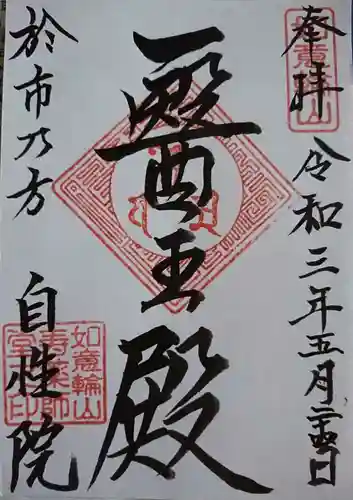 奉拝
令和三年五月二十四日
醫王殿
於市乃方
自性院
如意輪山
寿薬師
堂印